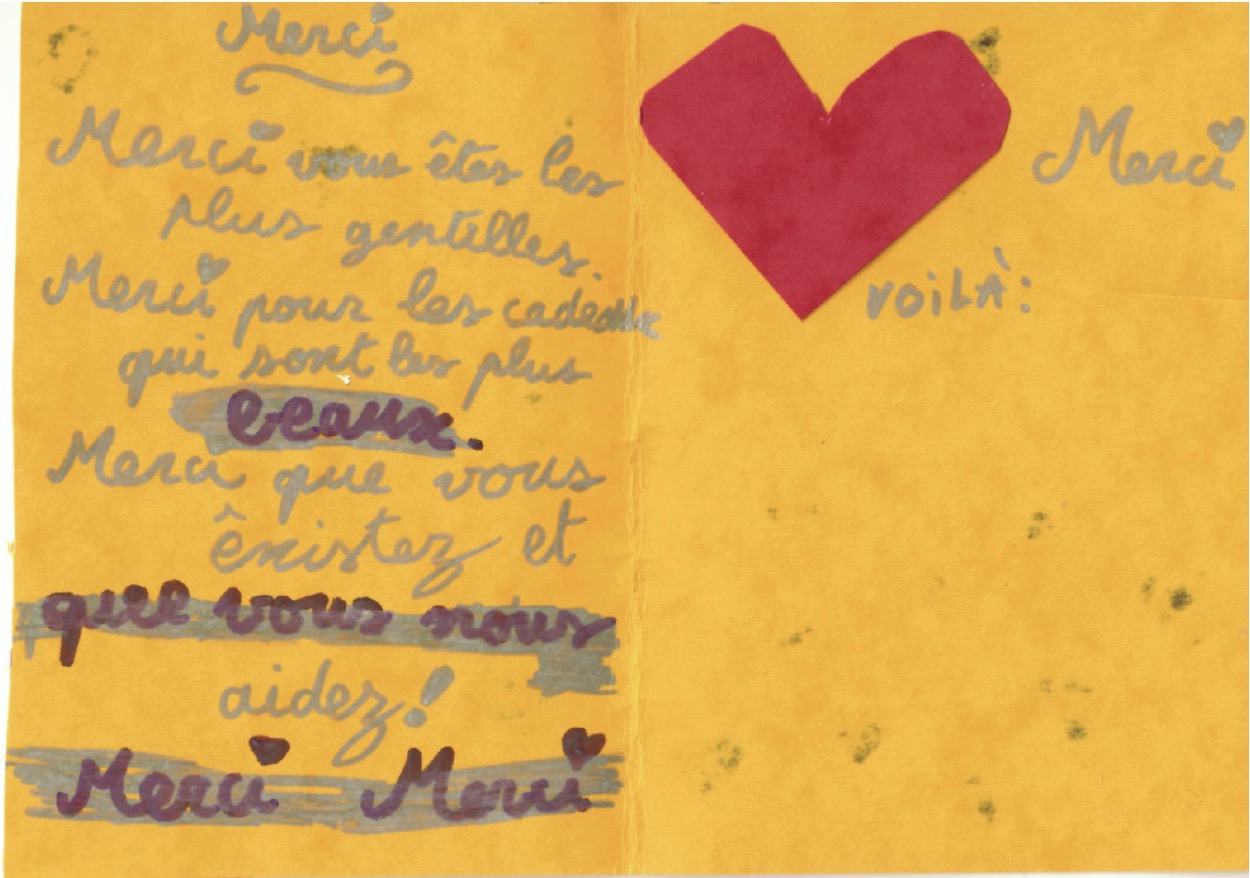 Merci
Merci vous êtes les
plus gentilles.
Merci pour les cadeaux
qui sont les plus
beaux.
Merci que vous
êxistez et
que vous nous
aidez!
Merci Merci
Merci
voiLÀ: